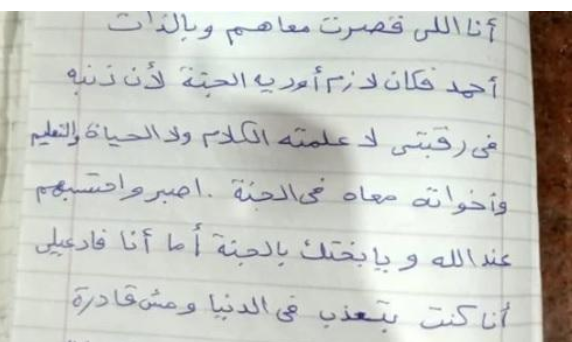 أنا اللى قصرت معاهم وبالذات
أحمد فكان لازم أوديه الجنة لأن ذنبه
فى رقبتى لا علمته الكلام ولا الحياة والتعليم
وأخواته معاه فى الجنة . اصبر واحتسبهم
عند الله و يا بختك بالجنة أما أنا فادعيلى
أنا كنت بتعذب فى الدنيا ومش قادرة